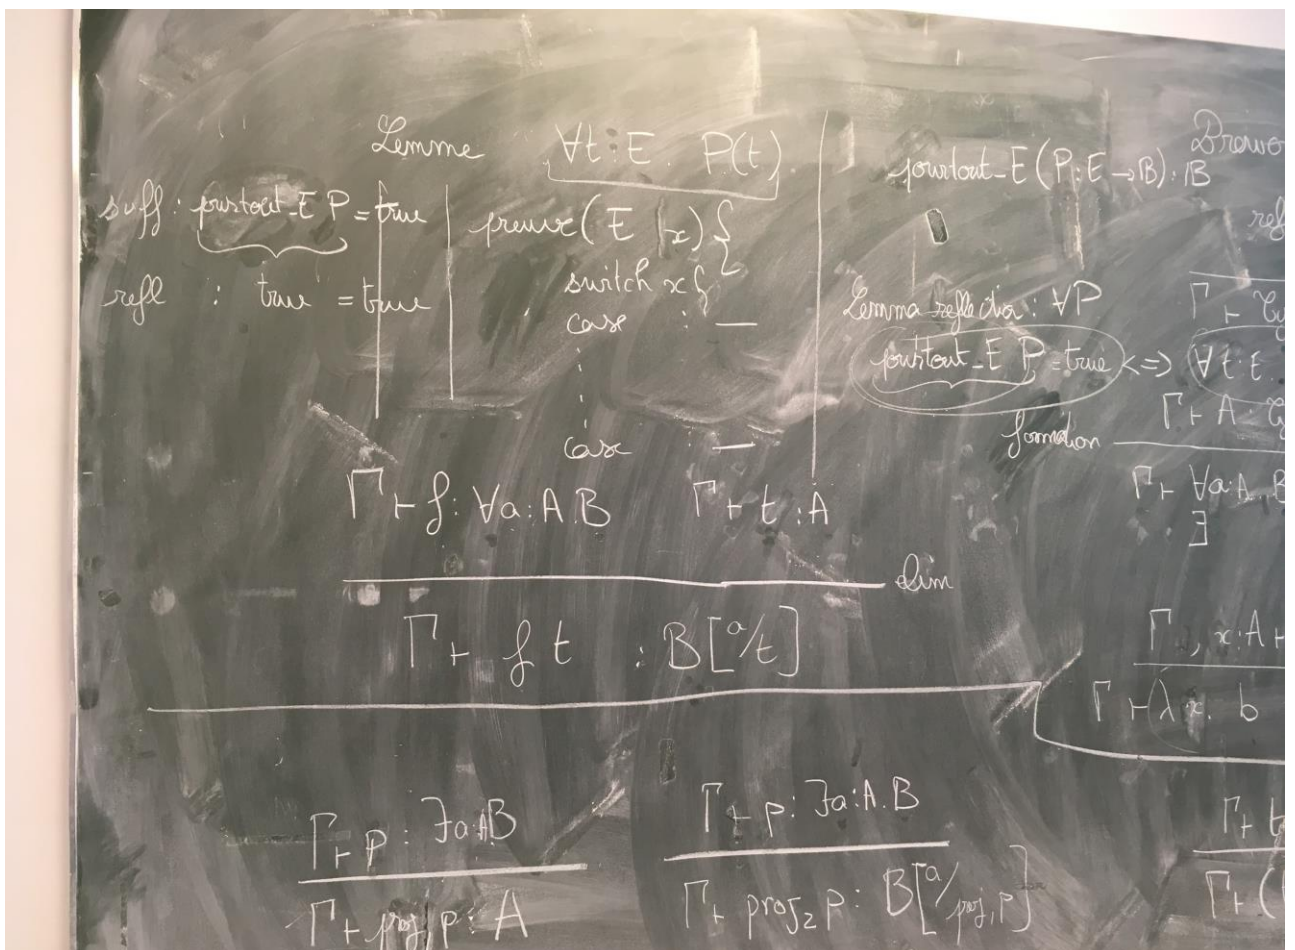 Lemme ∀t:E. P(t)
suff : pourtout_E P = true
refl : true = true
preuve(E x) {
switch x {
case : —
case —
pourtout_E (P : E → B) : B
Lemma reflection : ∀P
pourtout_E P = true <=> ∀t:E
formation
Γ ⊢ A
Γ ⊢ ∀a:A, B
∃
Γ ⊢ f : ∀a:A.B Γ ⊢ t : A
élim
Γ ⊢ f t : B[a/t]
Γ, x:A ⊢
Γ ⊢ λx. b
Γ ⊢ p : ∃a:A.B
Γ ⊢ proj₁ p : A
Γ ⊢ p : ∃a:A.B
Γ ⊢ proj₂ p : B[a/proj₁ p]
Γ ⊢ t
Γ ⊢ (